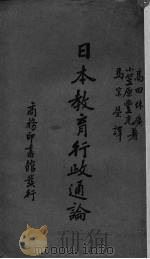 高田休廣
小笠原豊光著
馬宗榮譯
日本教育行政通論
商務印書館發行